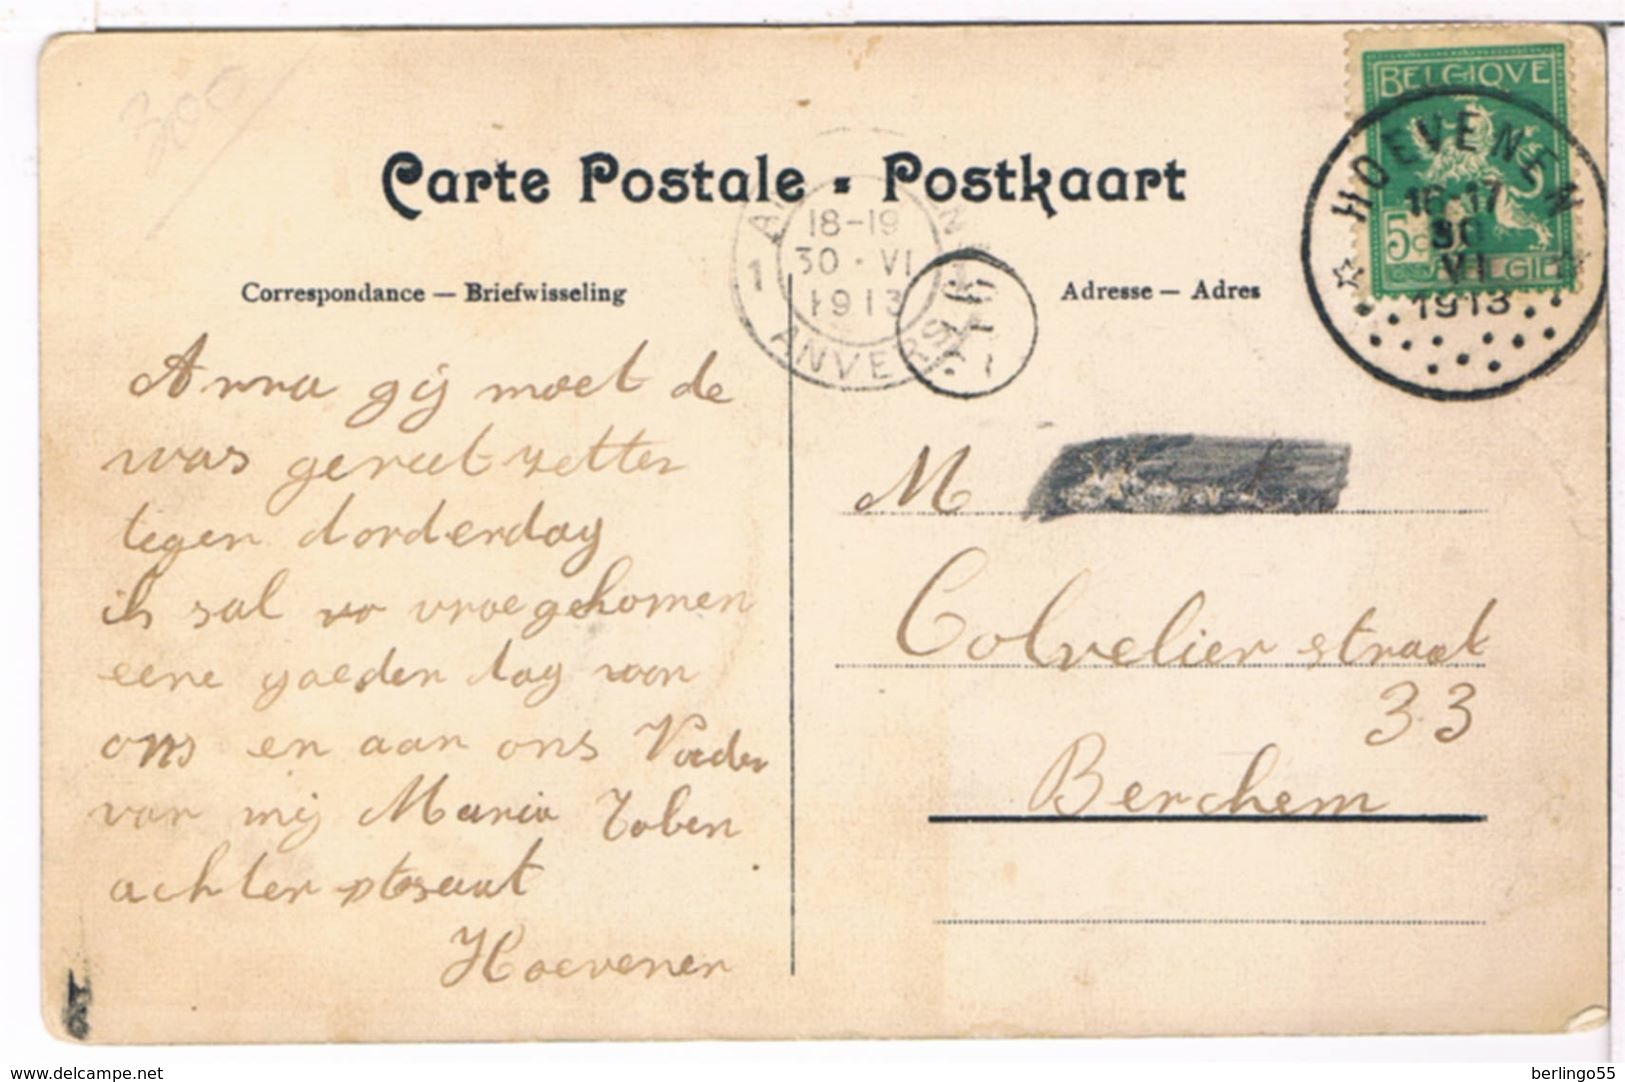 300
Carte Postale - Postkaart
BELGIQVE
5c
BELGIE
HOEVENEN
16-17
30
VI
1913
18-19
30·VI
1913
1
ANVERS
Correspondance — Briefwisseling
Adresse — Adres
Anna gij moet de
was gereet zetten
tegen donderdag
ik sal vroegekomen
eene goeden dag van
ons en aan ons Vader
van mij Maria Toben
achter straat
Hoevenen
M
Colvelier straat
33
Berchem
www.delcampe.net
berlingo55